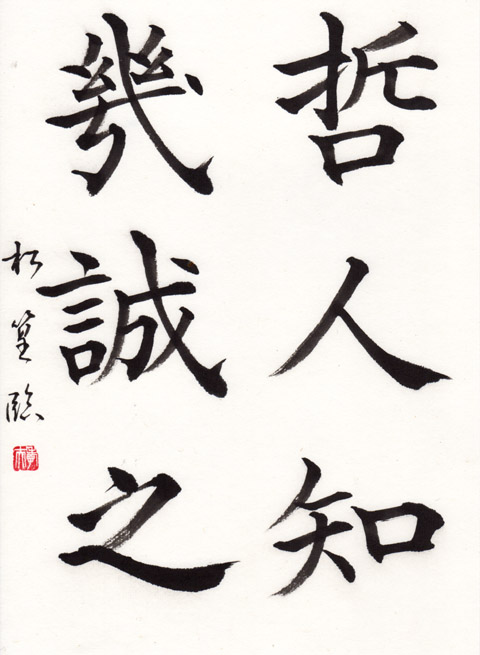 哲人知
幾誠之
松篁臨